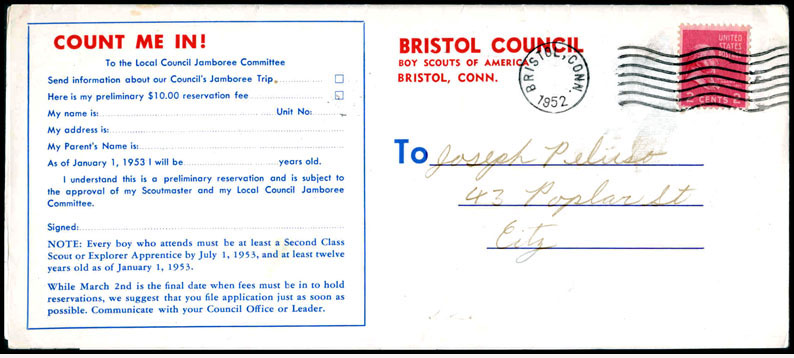 COUNT ME IN!
To the Local Council Jamboree Committee
Send information about our Council's Jamboree Trip
Here is my preliminary $10.00 reservation fee
My name is: Unit No:
My address is:
My Parent's Name is:
As of January 1, 1953 I will be years old.
I understand this is a preliminary reservation and is subject
to the approval of my Scoutmaster and my Local Council Jamboree
Committee.
Signed:
NOTE: Every boy who attends must be at least a Second Class
Scout or Explorer Apprentice by July 1, 1953, and at least twelve
years old as of January 1, 1953.
While March 2nd is the final date when fees must be in to hold
reservations, we suggest that you file application just as soon as
possible. Communicate with your Council Office or Leader.
BRISTOL COUNCIL
BOY SCOUTS OF AMERICA
BRISTOL, CONN.
BRISTOL, CONN.
1952
UNITED
STATES
2 CENTS 2
To Joseph Peluso
43 Poplar St
City